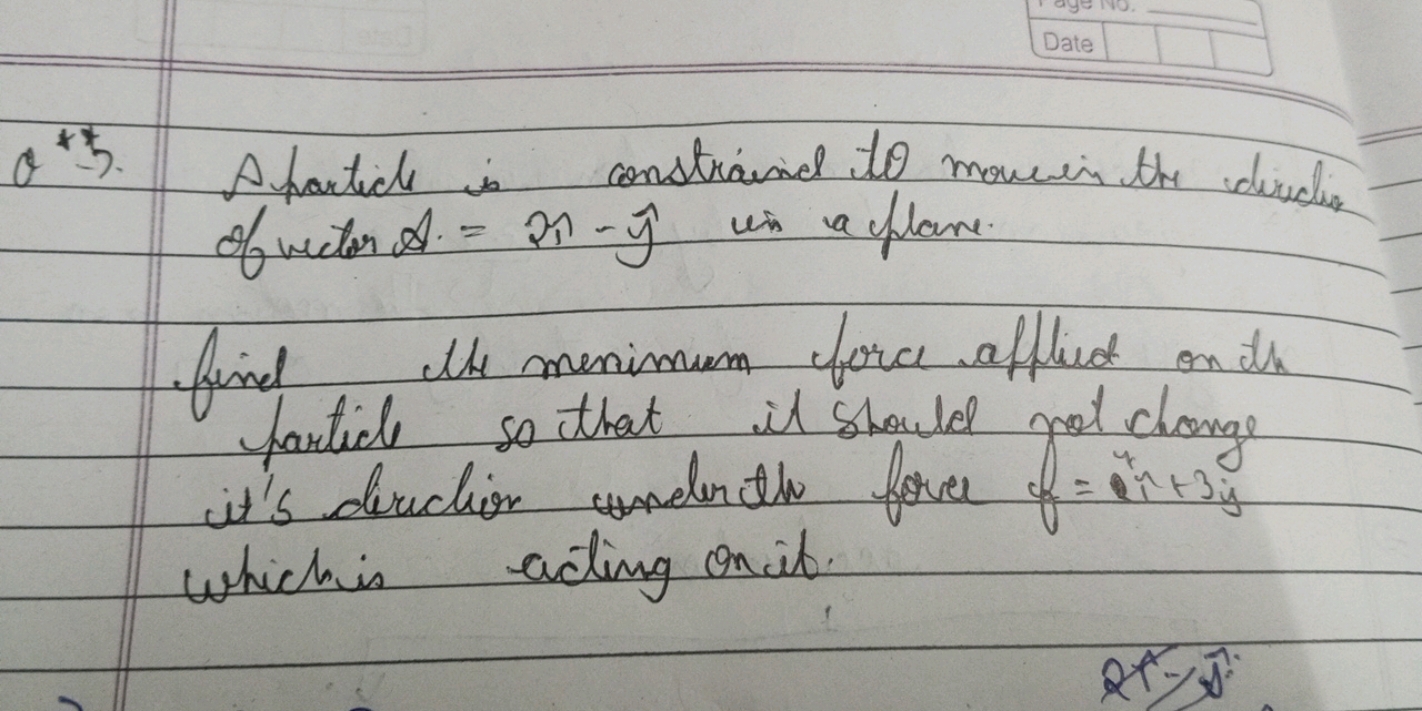 Page No.
Date
Q**5. A particle is constrained to move in the direction
of vector A = 2î - ĵ in a plane.
find the menimum force applied on the
particle so that it should not change
it's direction under the force f = î + 3j
which is acting on it.
2î - ĵ